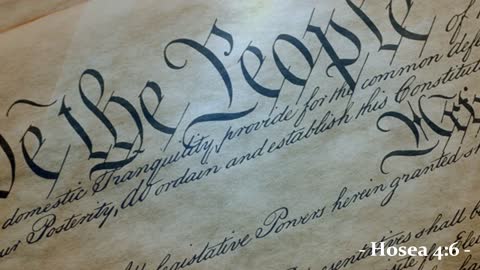 We the People of th
domestic Tranquility, provide for the common defe
our Posterity, do ordain and establish this Constituti
Arti
legislative Powers herein granted sh
resentatives shall be
- Hosea 4:6 -